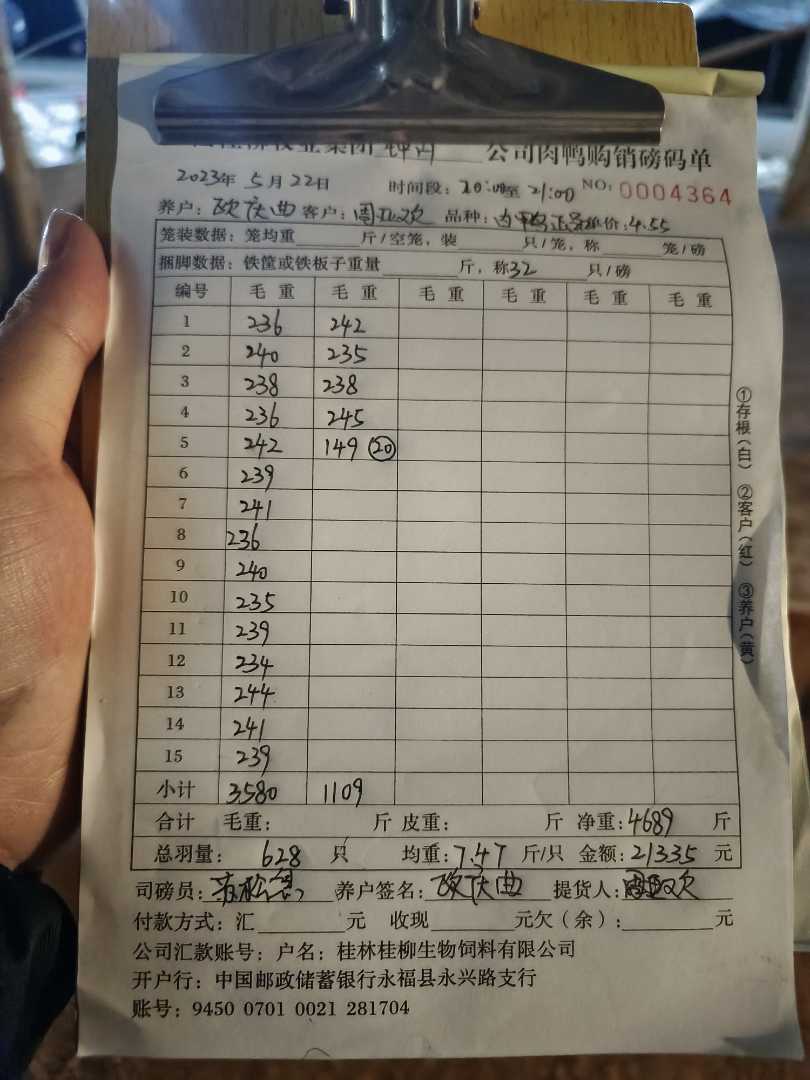 公司肉鸭购销磅码单
2023年 5月 22日 时间段: 20:00至 21:00 NO: 0004364
养户: 欧庆曲 客户: 周 欢 品种: 肉鸭 价: 4.55
笼装数据: 笼均重 斤/空笼, 装 只/笼, 称 笼/磅
捆脚数据: 铁筐或铁板子重量 斤, 称 32 只/磅
编号 毛重 毛重 毛重 毛重 毛重 毛重
1 236 242
2 240 235
3 238 238
4 236 245
5 242 149 (20)
6 239
7 241
8 236
9 240
10 235
11 239
12 234
13 244
14 241
15 239
小计 3580 1109
合计 毛重: 斤 皮重: 斤 净重: 4689 斤
总羽量: 628 只 均重: 7.47 斤/只 金额: 21335 元
司磅员: 养户签名: 欧庆曲 提货人: 周 欢
付款方式: 汇 元 收现 元 欠(余): 元
公司汇款账号: 户名: 桂林桂柳生物饲料有限公司
开户行: 中国邮政储蓄银行永福县永兴路支行
账号: 9450 0701 0021 281704
①存根(白) ②客户(红) ③养户(黄)